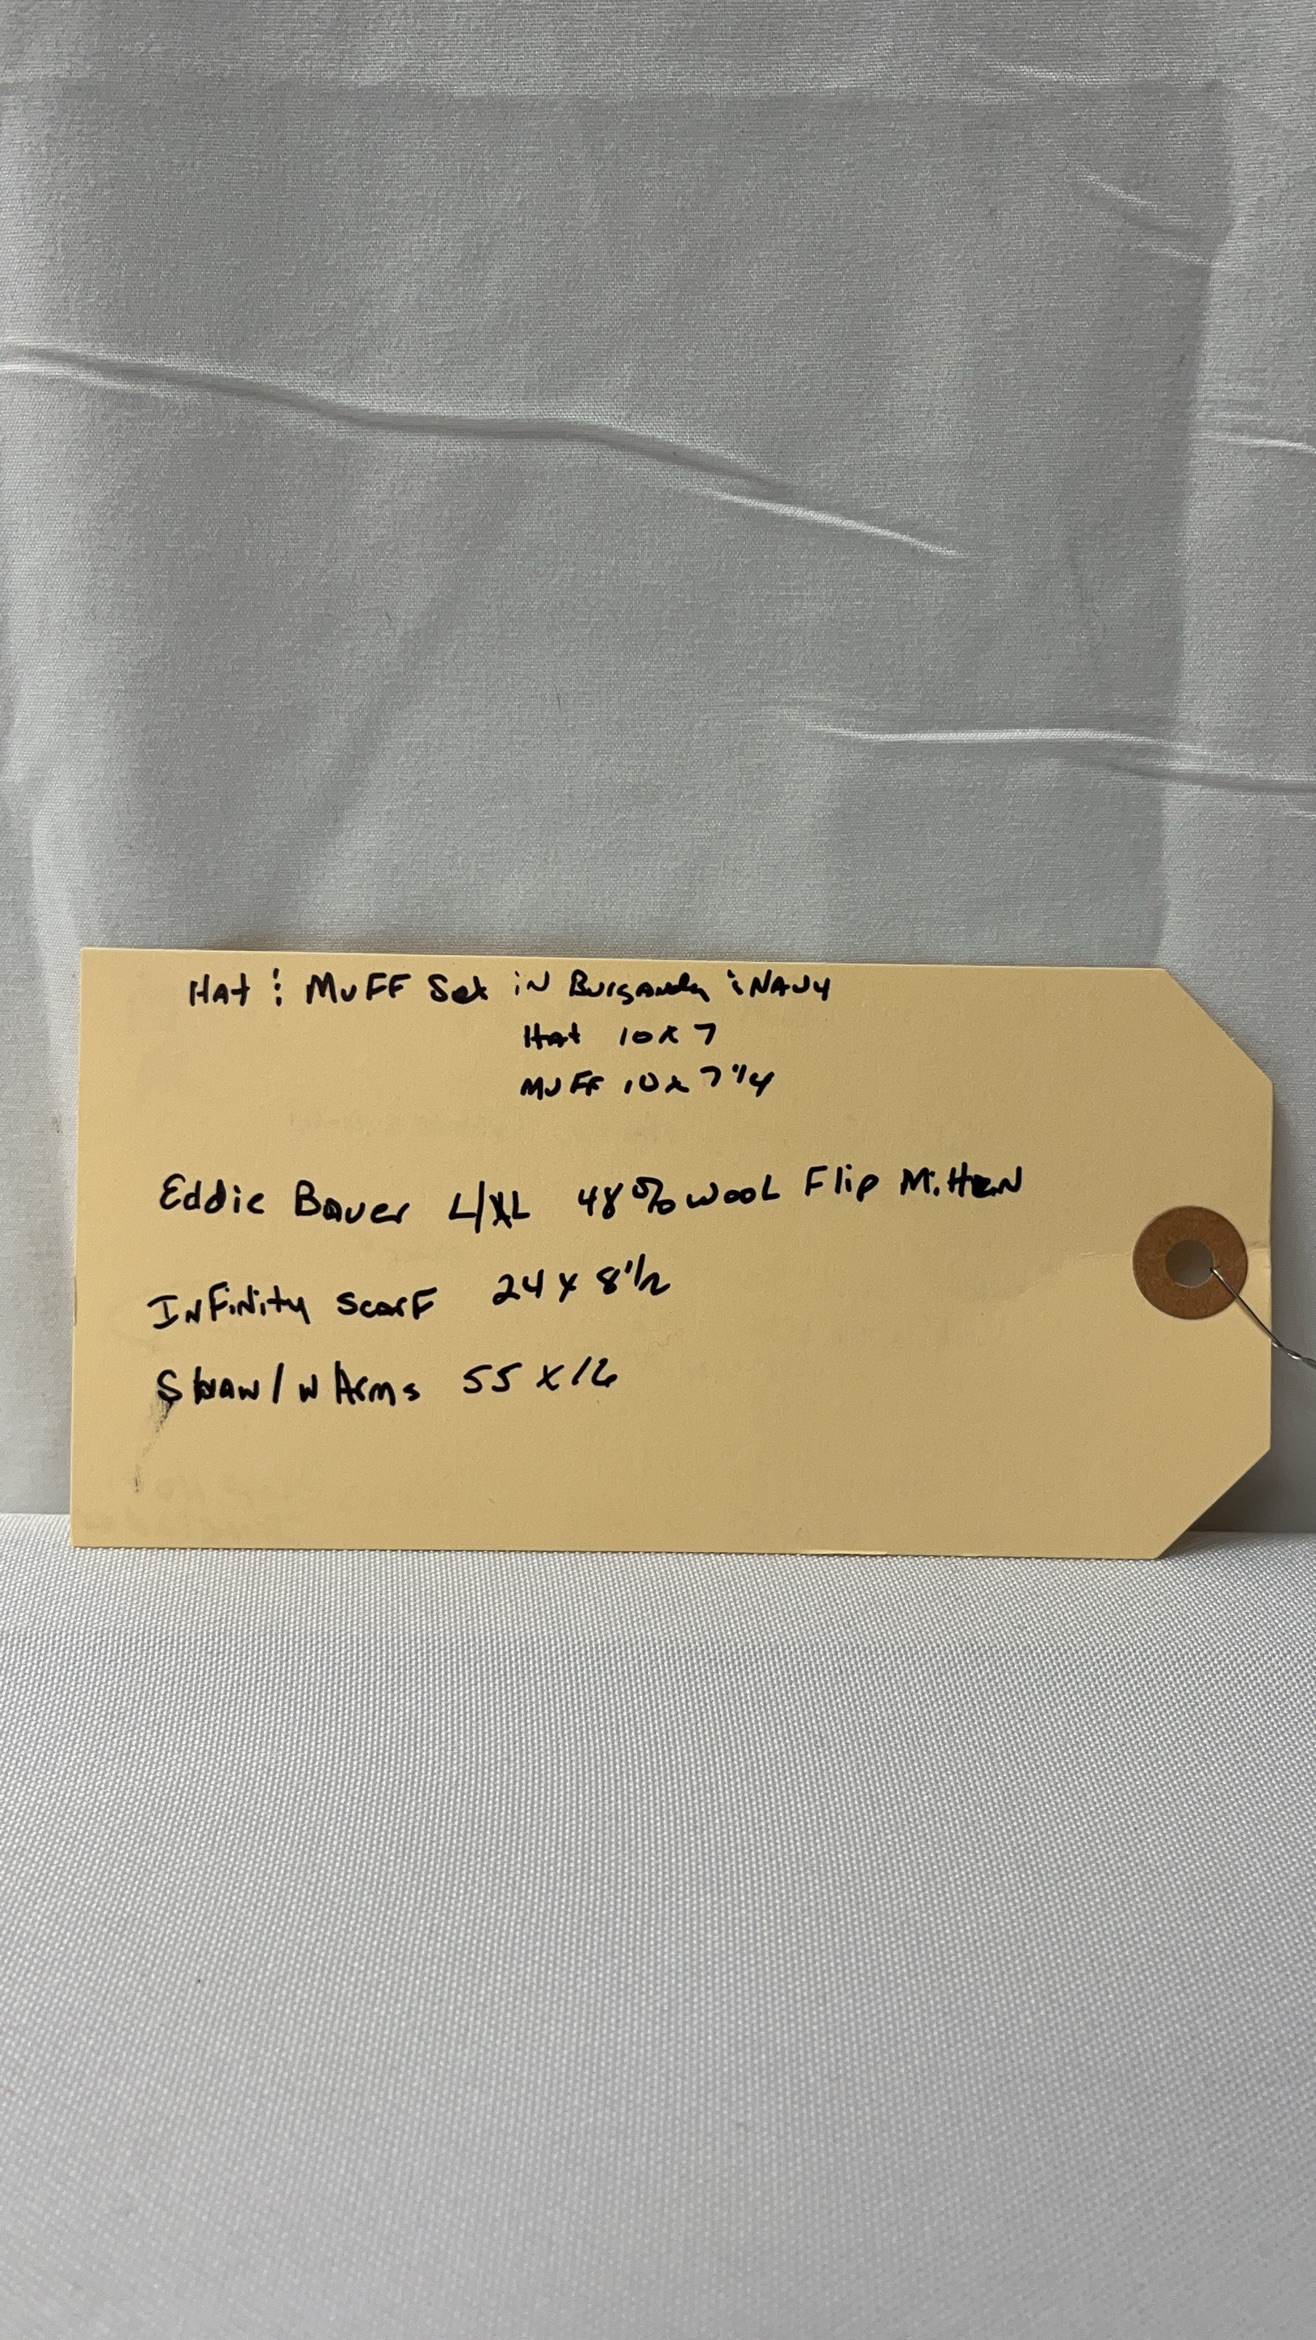 Hat & Muff Set in Burgandy & Navy
Hat 10 x 7
Muff 10 x 7 1/4
Eddie Bauer L/XL 48% Wool Flip Mitten
Infinity Scarf 24 x 8 1/2
Shaw/w Arms 55 x 16